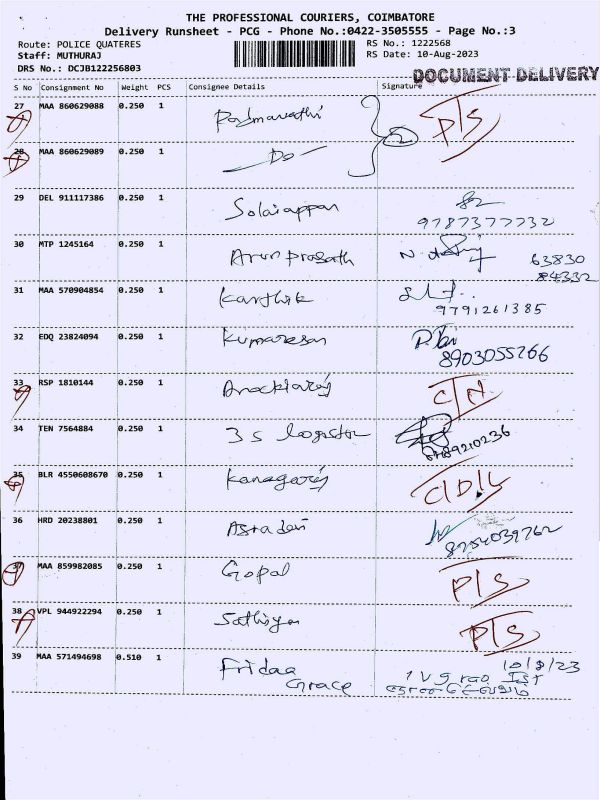 THE PROFESSIONAL COURIERS, COIMBATORE
Delivery Runsheet - PCG - Phone No.:0422-3505555 - Page No.:3
Route: POLICE QUATERES RS No.: 1222568
Staff: MUTHURAJ RS Date: 10-Aug-2023
DRS No.: DCJB122256803
DOCUMENT DELIVERY
S No Consignment No Weight PCS Consignee Details Signature
27 MAA 860629088 0.250 1 Padmavathi P/S
28 MAA 860629089 0.250 1 Do
29 DEL 911117386 0.250 1 Solaiappan
9787377732
30 MTP 1245164 0.250 1 Arun prasath 63830
84332
31 MAA 570904854 0.250 1 Karthik
9791261385
32 EDQ 23824094 0.250 1 Kumaresan
8903055266
33 RSP 1810144 0.250 1 C/N
34 TEN 7564884 0.250 1 3 S
35 BLR 4550608670 0.250 1 Kanagaraj C/D/L
36 HRD 20238801 0.250 1
8754039762
37 MAA 859982085 0.250 1 Gopal P/S
38 VPL 944922294 0.250 1 P/S
39 MAA 571494698 0.510 1 Fridaa 10/8/23
Grace